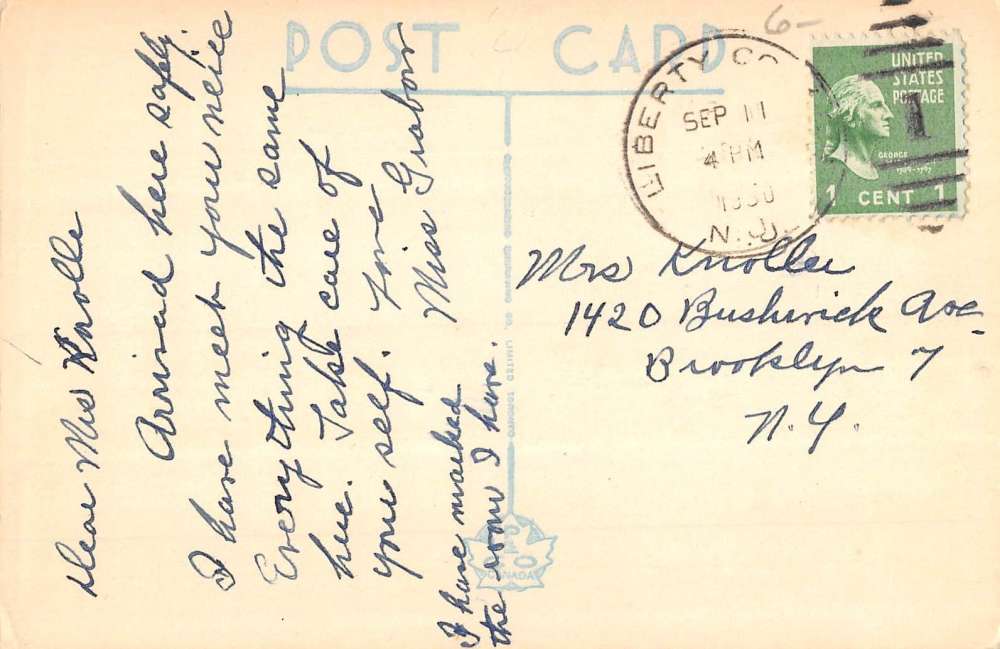 POST CARD
6-
LIBERTY
SEP 11
4 PM
N.Y.
UNITED
STATES
POSTAGE
1
GEORGE
1 CENT 1
Dear Mrs Knolle
Arrived here safely.
I have meet your neice
Everything the same
hee. Take care of
your self. Love
Miss Grabow
I have marked
the room I have.
Mrs Knolle
1420 Bushwick Ave
Brooklyn 7
N.Y.
CANADA